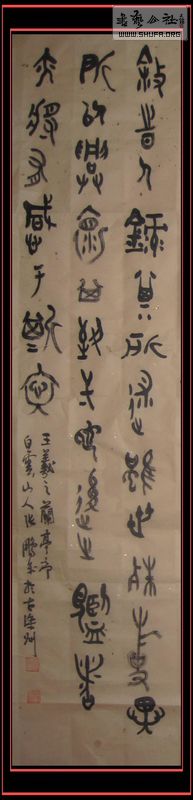 書法公社
WWW.SHUFA.ORG
敘時人錄其所述雖世殊事異
所以興懷其致一也後之覽者
亦將有感于斯文
王羲之蘭亭序
白雲山人張鵬於古梁州